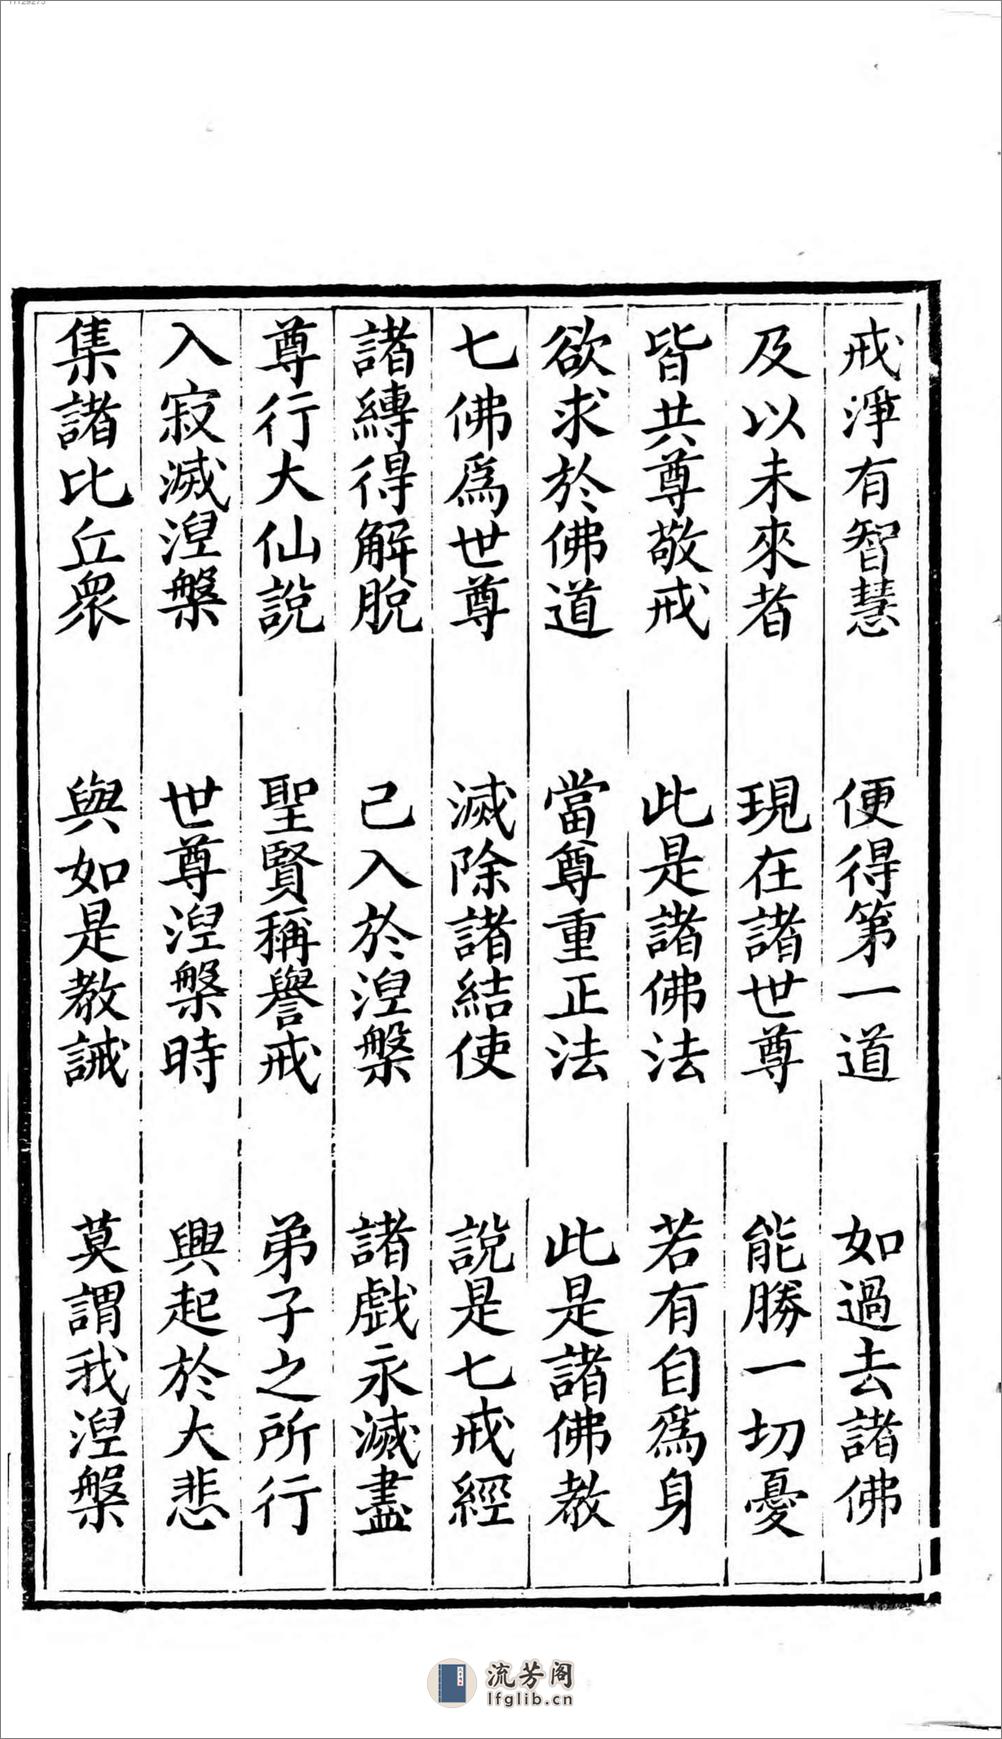 戒淨有智慧　便得第一道　如過去諸佛
及以未來者　現在諸世尊　能勝一切憂
皆共尊敬戒　此是諸佛法　若有自爲身
欲求於佛道　當尊重正法　此是諸佛教
七佛爲世尊　滅除諸結使　說是七戒經
諸縛得解脫　已入於涅槃　諸戲永滅盡
尊行大仙說　聖賢稱譽戒　弟子之所行
入寂滅涅槃　世尊涅槃時　興起於大悲
集諸比丘眾　與如是教誡　莫謂我涅槃
流芳阁
lfglib.cn